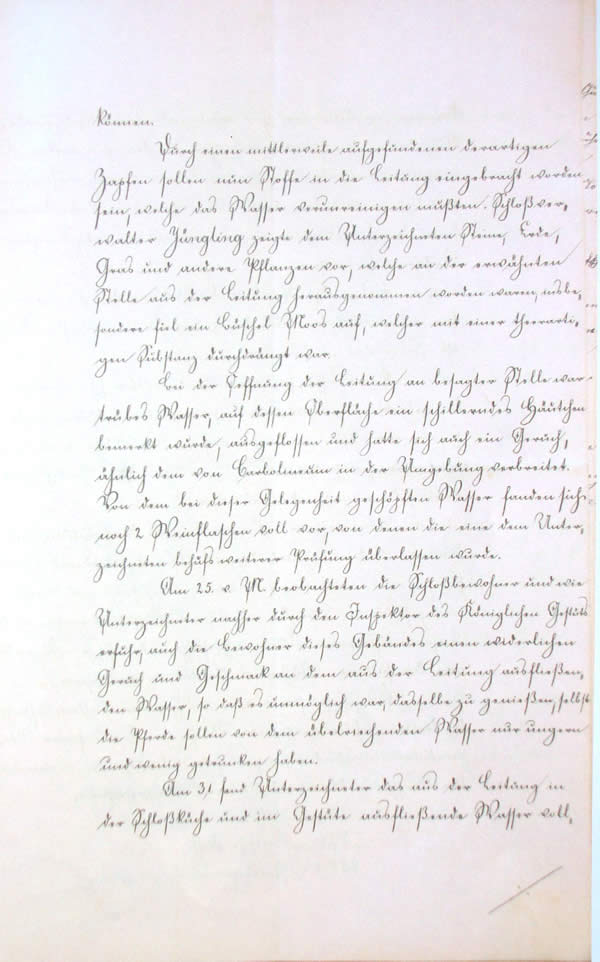 können.
Durch einen mittlerweile aufgefundenen derartigen
Zapfen sollen nun Stoffe in die Leitung eingebracht worden
sein, welche das Wasser verunreinigen müßten. Schloßver-
walter Jüngling zeigte dem Unterzeichneten Steine, Erde,
Gras und andere Pflanzen vor, welche an der erwähnten
Stelle aus der Leitung herausgenommen worden waren, insbe-
sondere fiel ein Büschel Moos auf, welcher mit einer theerarti-
gen Substanz durchdrängt war.
Bei der Oeffnung der Leitung an besagter Stelle war
trübes Wasser, auf dessen Oberfläche ein schillerndes Häutchen
bemerkt wurde, ausgeflossen und hatte sich auch ein Geruch,
ähnlich dem von Carbolineum in der Umgebung verbreitet.
Von dem bei dieser Gelegenheit geschöpften Wasser fanden sich
noch 2 Weinflaschen voll vor, von denen die eine dem Unter-
zeichneten behufs weiterer Prüfung überlassen wurde.
Am 25. v. M. beobachteten die Schloßbewohner und wie
Unterzeichneter nachher durch den Inspektor des Königlichen Gestüts
erfuhr, auch die Bewohner dieses Gebäudes einen widerlichen
Geruch und Geschmack an dem aus der Leitung ausfließen-
den Wasser, so daß es unmöglich war, dasselbe zu genießen, selbst
die Pferde sollen von dem übelriechenden Wasser nur ungern
und wenig getrunken haben.
Am 31. fand Unterzeichneter das aus der Leitung in
der Schloßküche und im Gestüte ausfließende Wasser voll-